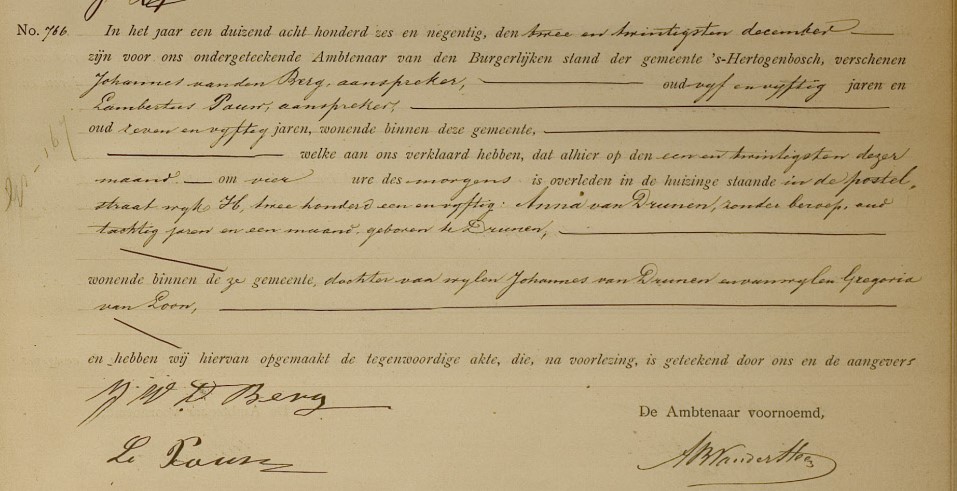 No. 766. In het jaar een duizend acht honderd zes en negentig, den twee en twintigsten december
zijn voor ons ondergeteekende Ambtenaar van den Burgerlijken stand der gemeente 's-Hertogenbosch, verschenen
Johannes van den Berg, aanspreker, oud vyf en vyftig jaren en
Lambertus Pauw, aanspreker,
oud zeven en vyftig jaren, wonende binnen deze gemeente,
welke aan ons verklaard hebben, dat alhier op den een en twintigsten dezer
maand om vier ure des morgens is overleden in de huizinge staande in de postel,
straat wyk H, twee honderd een en vyftig: Anna van Drunen, zonder beroep, oud
tachtig jaren en een maand, geboren te Drunen,
wonende binnen de ze gemeente, dochter van wylen Johannes van Drunen en van wylen Gregoria
van Loon,
en hebben wij hiervan opgemaakt de tegenwoordige akte, die, na voorlezing, is geteekend door ons en de aangevers
J W D Berg
De Ambtenaar voornoemd,
L. Pauw